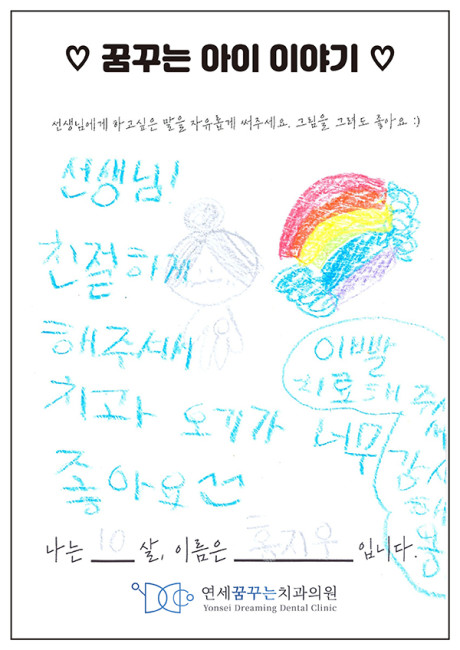 ♡ 꿈꾸는 아이 이야기 ♡
선생님에게 하고싶은 말을 자유롭게 써주세요. 그림을 그려도 좋아요 :)
선생님!
친걸하게
해주세서
치과 오기가 너무
좋아요
이빨
치료해 주셔
서
감사
해
용
나는 10 살, 이름은 홍지우 입니다.
연세꿈꾸는치과의원
Yonsei Dreaming Dental Clinic